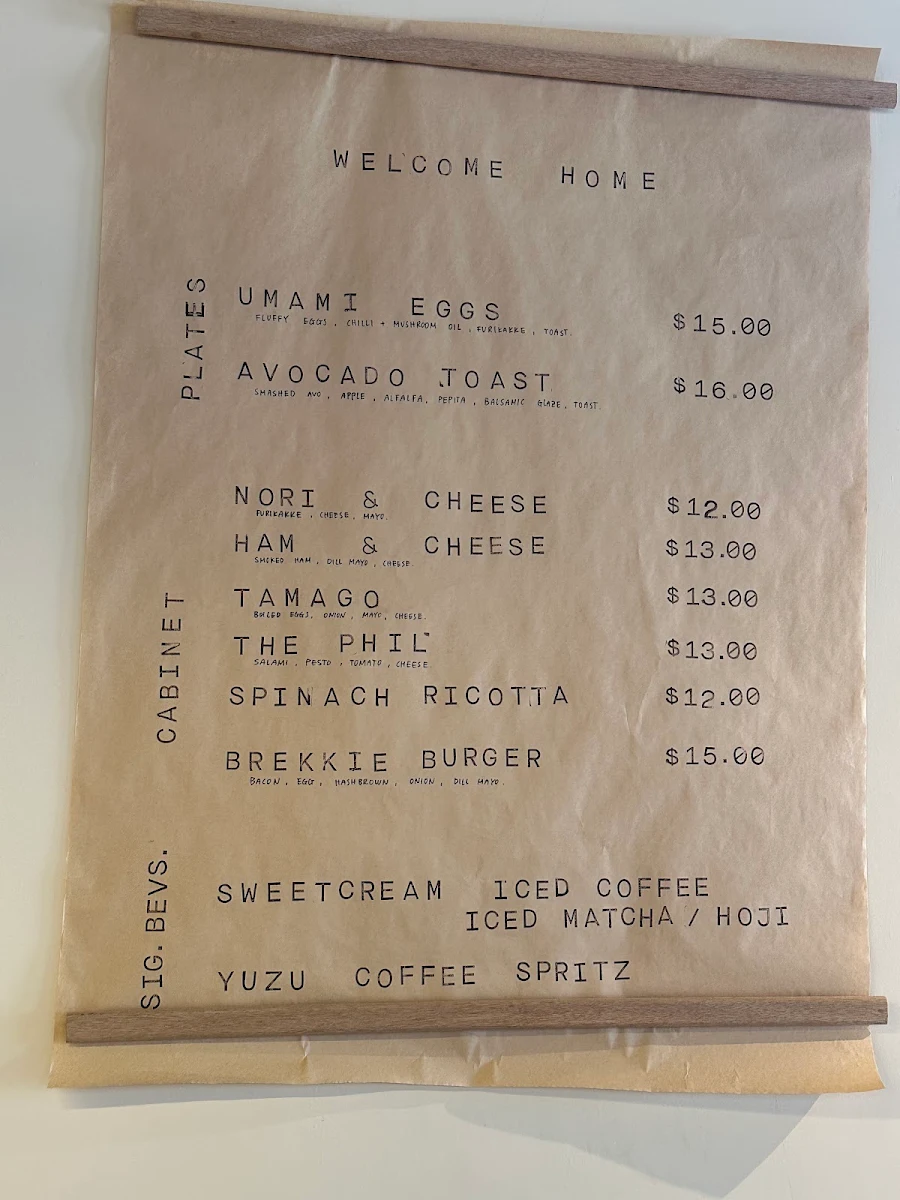 WELCOME HOME
PLATES
UMAMI EGGS $15.00
FLUFFY EGGS, CHILLI + MUSHROOM OIL, FURIKAKKE, TOAST.
AVOCADO TOAST $16.00
SMASHED AVO, APPLE, ALFALFA, PEPITA, BALSAMIC GLAZE, TOAST.
CABINET
NORI & CHEESE $12.00
FURIKAKKE, CHEESE, MAYO.
HAM & CHEESE $13.00
SMOKED HAM, DILL MAYO, CHEESE.
TAMAGO $13.00
BOILED EGGS, ONION, MAYO, CHEESE.
THE PHIL $13.00
SALAMI, PESTO, TOMATO, CHEESE.
SPINACH RICOTTA $12.00
BREKKIE BURGER $15.00
BACON, EGG, HASHBROWN, ONION, DILL MAYO.
SIG. BEVS.
SWEETCREAM ICED COFFEE
ICED MATCHA / HOJI
YUZU COFFEE SPRITZ